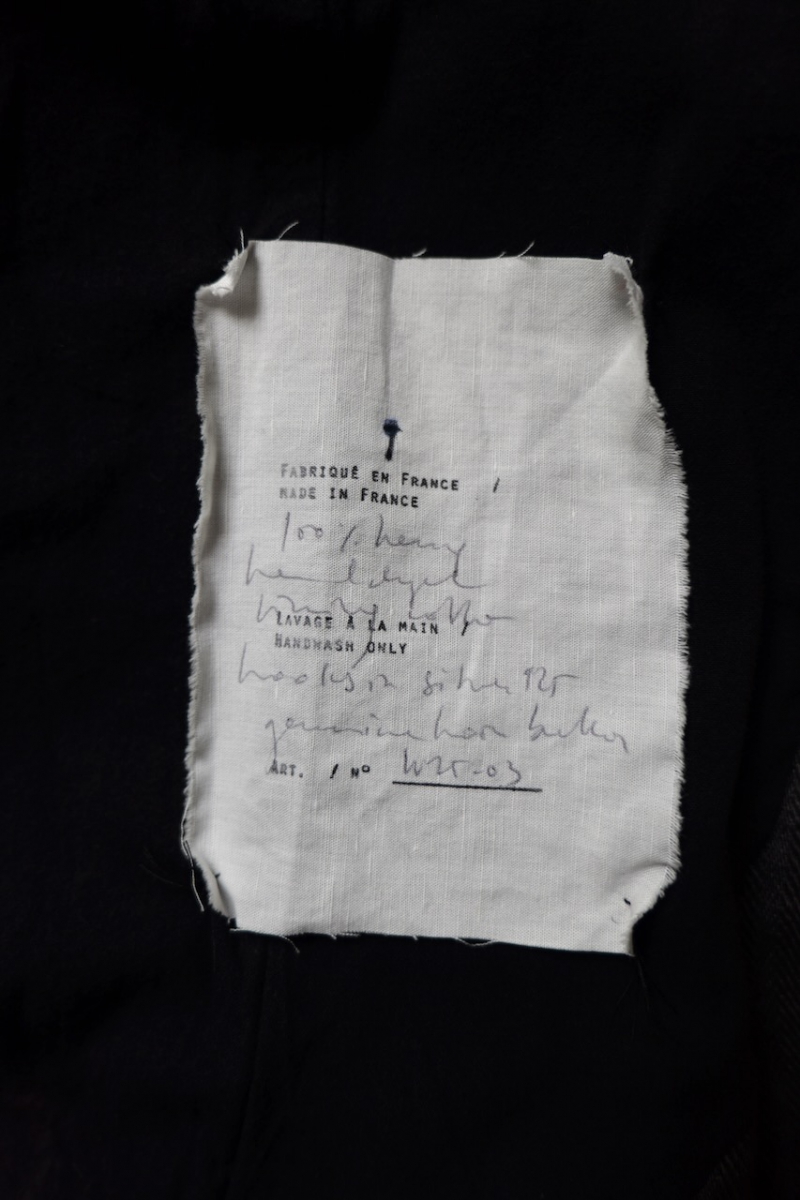 FABRIQUÉ EN FRANCE /
MADE IN FRANCE
100% hemp
hand dyed
LAVAGE À LA MAIN
HANDWASH ONLY
hooks in silver 925
genuine horn button
ART. / Nº W25-03